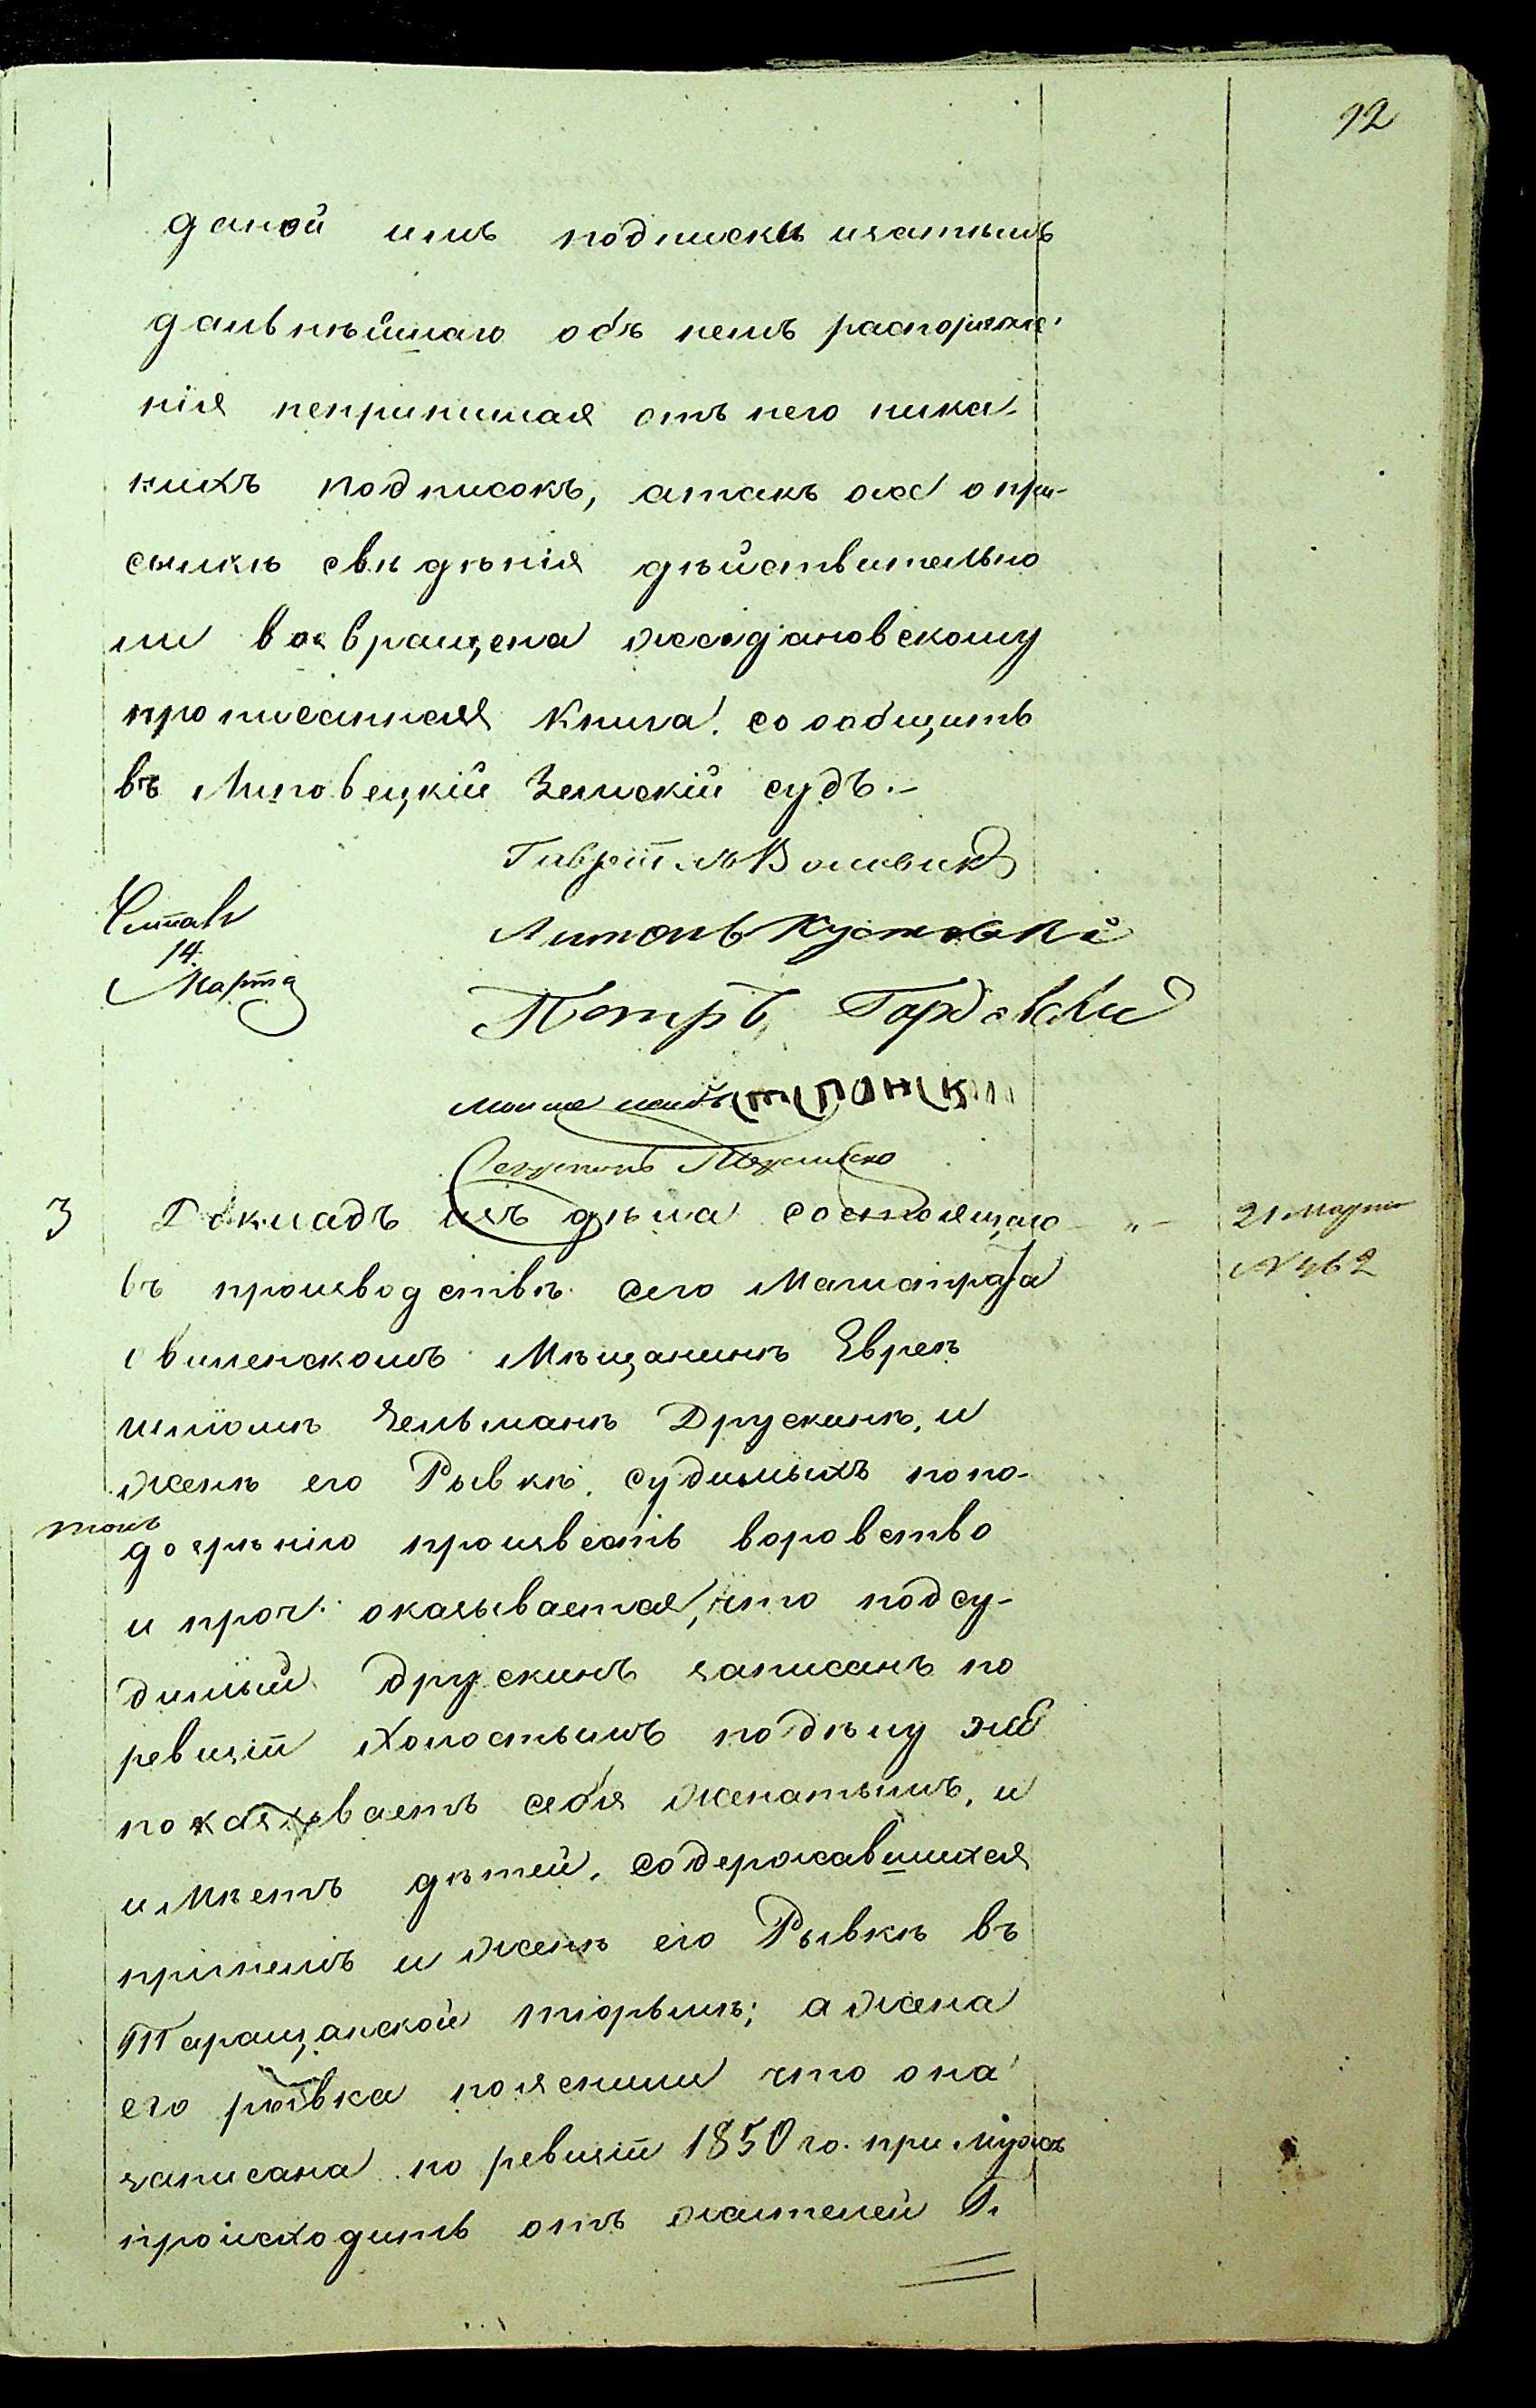 12
даной имъ подписки изатѣмъ
дальнѣйшаго объ немъ распоряже-
нія непринимая отъ него ника-
кихъ подписокъ, атакъ же о при-
сылкѣ свѣдѣнія дѣйствительно
ли возвращена Жездановскому
прописанная Книга. сообщить
въ Липовецкій Земскій судъ.-
Гавріилъ Воловикъ
Антонъ Кустовскі
Читалъ
14.
Марта
Петръ
3
Докладъ изъ дѣла состоящаго
21 Марта
№ 462
въ производствѣ сего Магистрата
о виленскомъ Мѣщанинѣ Евреѣ
Шліомѣ Зельманѣ Друскинѣ, и
женѣ его Рывкѣ. судимыхъ попо-
дозрѣнію произвесть воровство
и проч. оказывается, что подсу-
димый Друскинъ записанъ по
ревизіи Холостымъ подѣлу же
показываетъ себя женатымъ, и
имѣетъ дѣтей, содержавшихся
принемъ и женѣ его Рывкѣ въ
Таращанской тюрьмѣ; а жена
его рывка пояснила что она
записана по ревизіи 1850 го. при мужѣ
происходитъ отъ жителей Г.